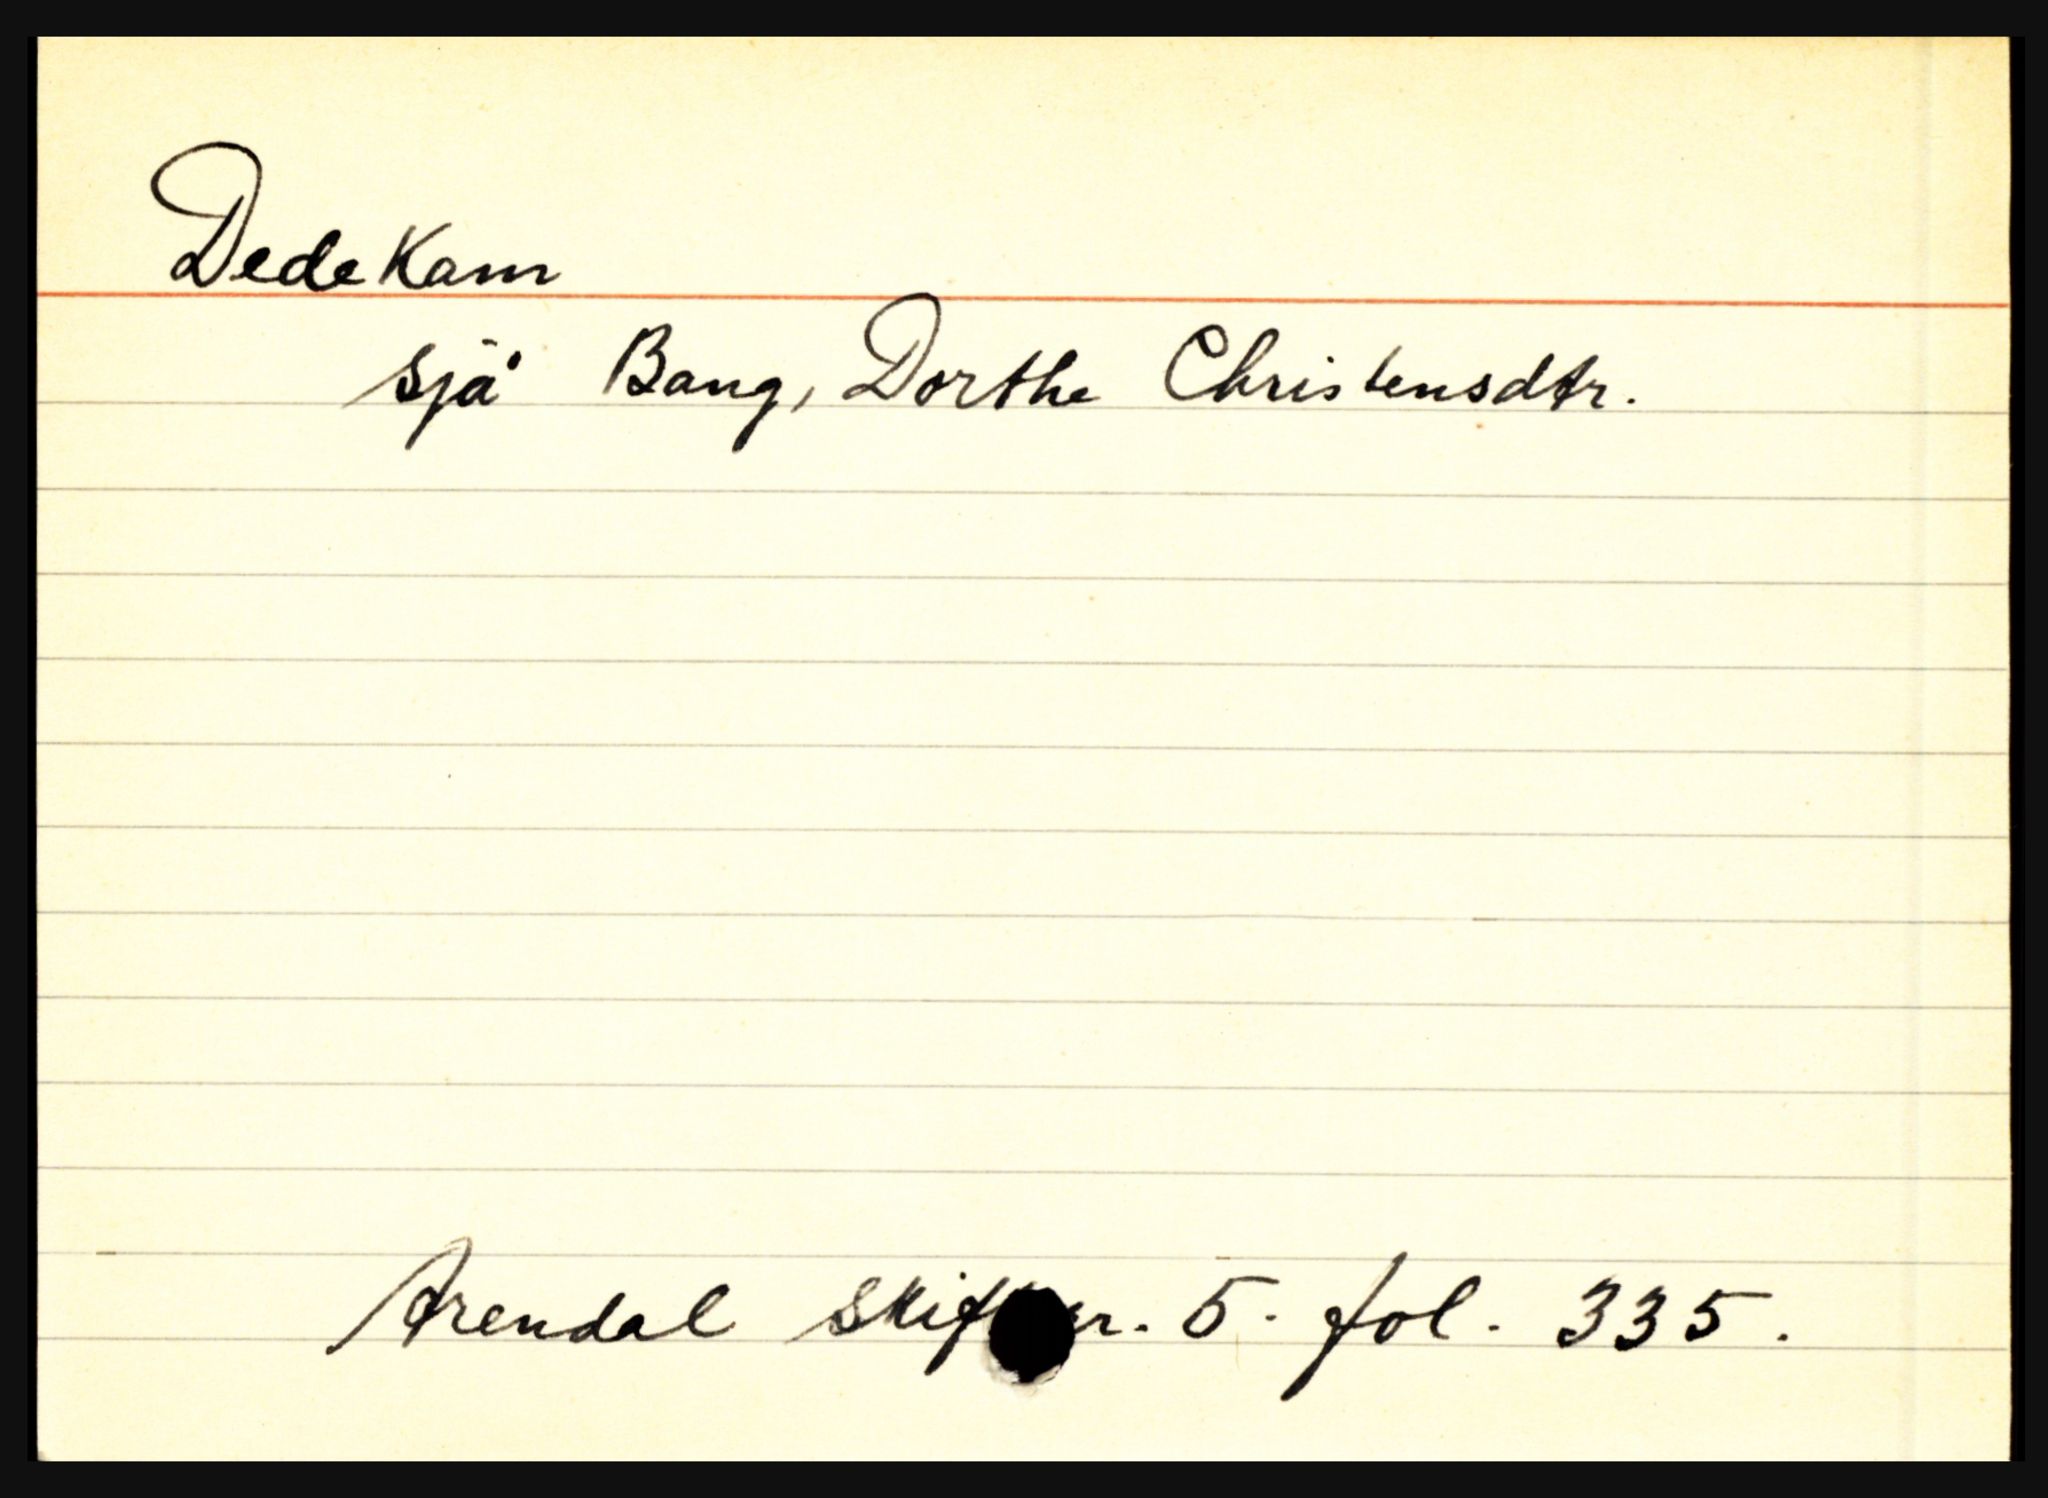 Dedekam
sjå Bang, Dorthe Christensdtr.
Arendal 5. fol. 335.